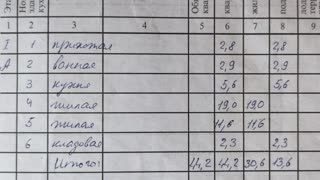 1 2 3 4 5 6 7 8 9
I 1 прихожая 2,8 2,8
А 2 ванная 2,9 2,9
3 кухня 5,6 5,6
4 жилая 19,0 19,0
5 жилая 11,6 11,6
6 кладовая 2,3 2,3
Итого: 44,2 44,2 30,6 13,6